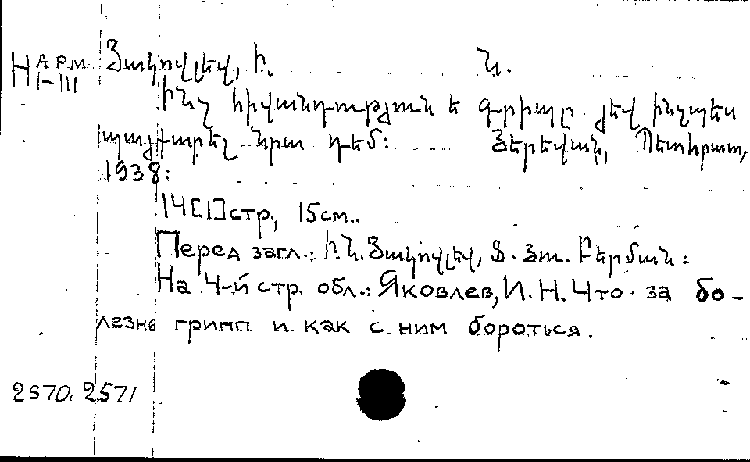 Н АРМ Յակովլեվ, Ի. Ն.
I-III
Ինչ հիվանդություն ե գրիպը յեվ ինչպես
պայքարել նրա դեմ: Յերեվան, Պետհրատ,
1938:
14[1]стр, 15см..
Перед загл.: Ի.Ն. Յակովլեվ, Յու. Բերման:
На 4-й стр. обл.: Яковлев, И. Н. Что за бо-
лезнь грипп и как с ним бороться.
2570. 2571